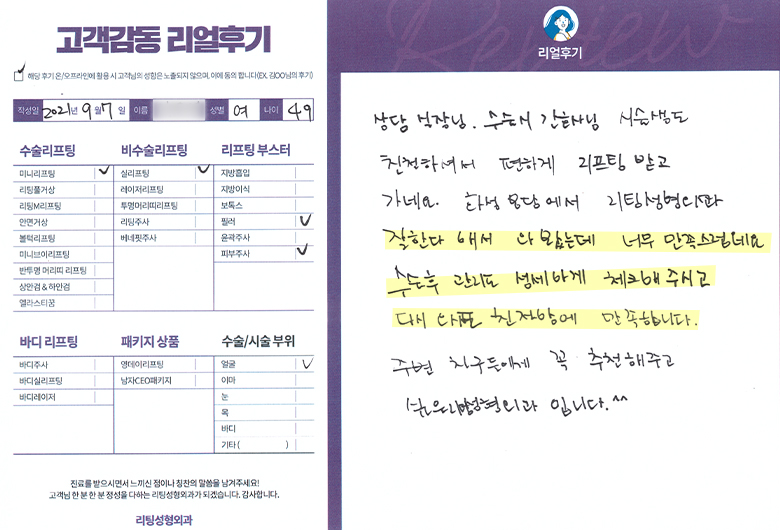 고객감동 리얼후기
해당 후기 온/오프라인에 활용 시 고객님의 성함은 노출되지 않으며, 이에 동의 합니다(EX. 김OO님의 후기)
작성일 2021년 9월 7일 이름 성별 여 나이 49
수술리프팅
미니리프팅
리팅풀거상
리팅M리프팅
안면거상
볼턱리프팅
미니브이리프팅
반투명 머리띠 리프팅
상안검 & 하안검
엘라스티꿈
비수술리프팅
실리프팅
레이저리프팅
투명머리띠리프팅
리팅주사
베네핏주사
리프팅 부스터
지방흡입
지방이식
보톡스
필러
윤곽주사
피부주사
바디 리프팅
바디주사
바디실리프팅
바디레이저
패키지 상품
영데이리프팅
남자CEO패키지
수술/시술 부위
얼굴
이마
눈
목
바디
기타 ( )
진료를 받으시면서 느끼신 점이나 칭찬의 말씀을 남겨주세요!
고객님 한 분 한 분 정성을 다하는 리팅성형외과가 되겠습니다. 감사합니다.
리팅성형외과
Review
리얼후기
상담 실장님. 수술시 간호사님 시술쌤도
친절하셔서 편하게 리프팅 받고
가네요. 화성 에서 리팅성형외과
잘한다 해서 와 봤는데 너무 만족스럽네요
수술후 관리도 섬세하게 체크해 주시고
다시 와도 친절함에 만족합니다.
주변 친구들에게 꼭 추천해주고
싶은 리팅성형외과 입니다.^^